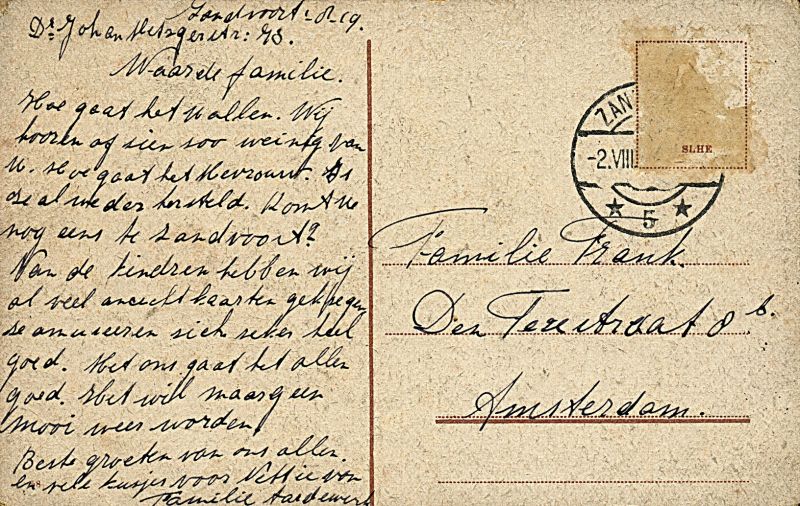 Zandvoort 1-8-19.
Dr. Johan Metzgerstr: 73.
Waarde familie.
Hoe gaat het U allen. Wij
hooren of sien soo weinig van
U. Hoe gaat het Mevrouw. Is
se al weder hersteld. Komt Ue
nog eens te Zandvoort?
Van de kindren hebben wij
al veel ansicht kaarten gekregen
se amuseeren sich seker heel
goed. Met ons gaat het allen
goed. Het wil maar geen
mooi weer worden.
Beste groeten van ons allen.
en vele kusjes voor Nettie van
Familie Aardewerk
ZAN
-2.VIII
5
SLHE
Familie Frank.
Den Texestraat 8 b.
Amsterdam.